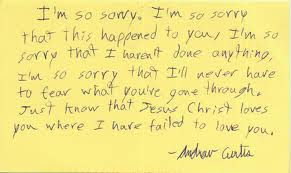 I'm so sorry. I'm so sorry
that this happened to you, I'm so
sorry that I haven't done anything,
I'm so sorry that I'll never have
to fear what you've gone through.
Just know that Jesus Christ loves
you where I have failed to love you.
- Andrew Curtis